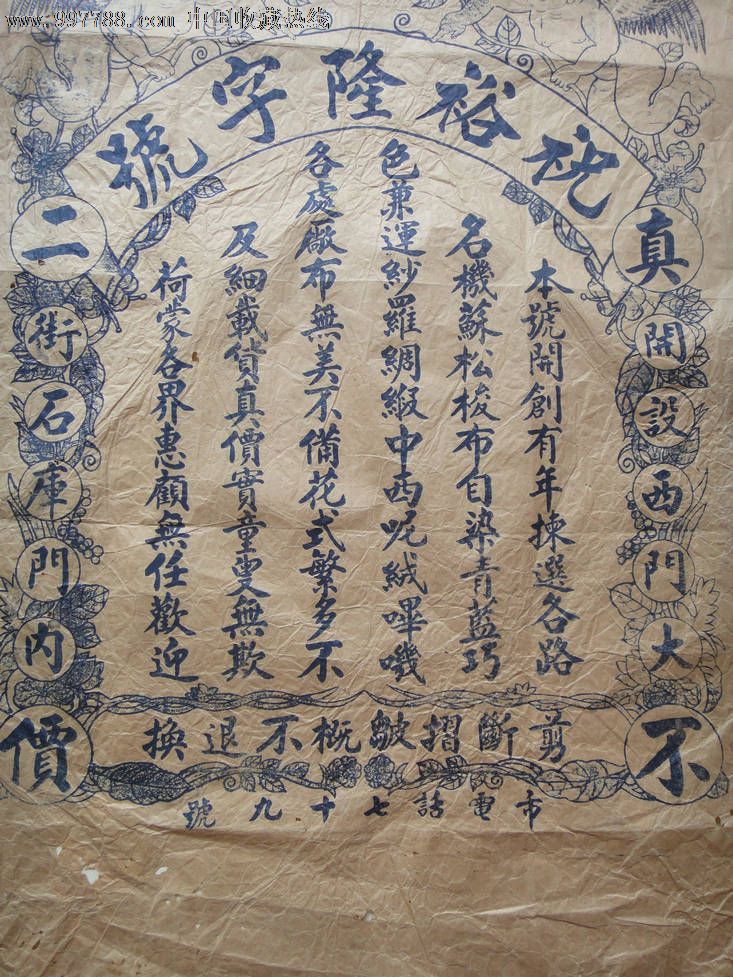 www.997788.com 中国收藏热线
祝裕隆字號
真不二價
開設西門大
街石庫門內
本號開創有年揀選各路
名機蘇松梭布自染青藍巧
色兼運紗羅綢緞中西呢絨嗶嘰
各處廠布無美不備花式繁多不
及細載貨真價實童叟無欺
荷蒙各界惠顧無任歡迎
剪斷摺皺概不退換
市電話七十九號